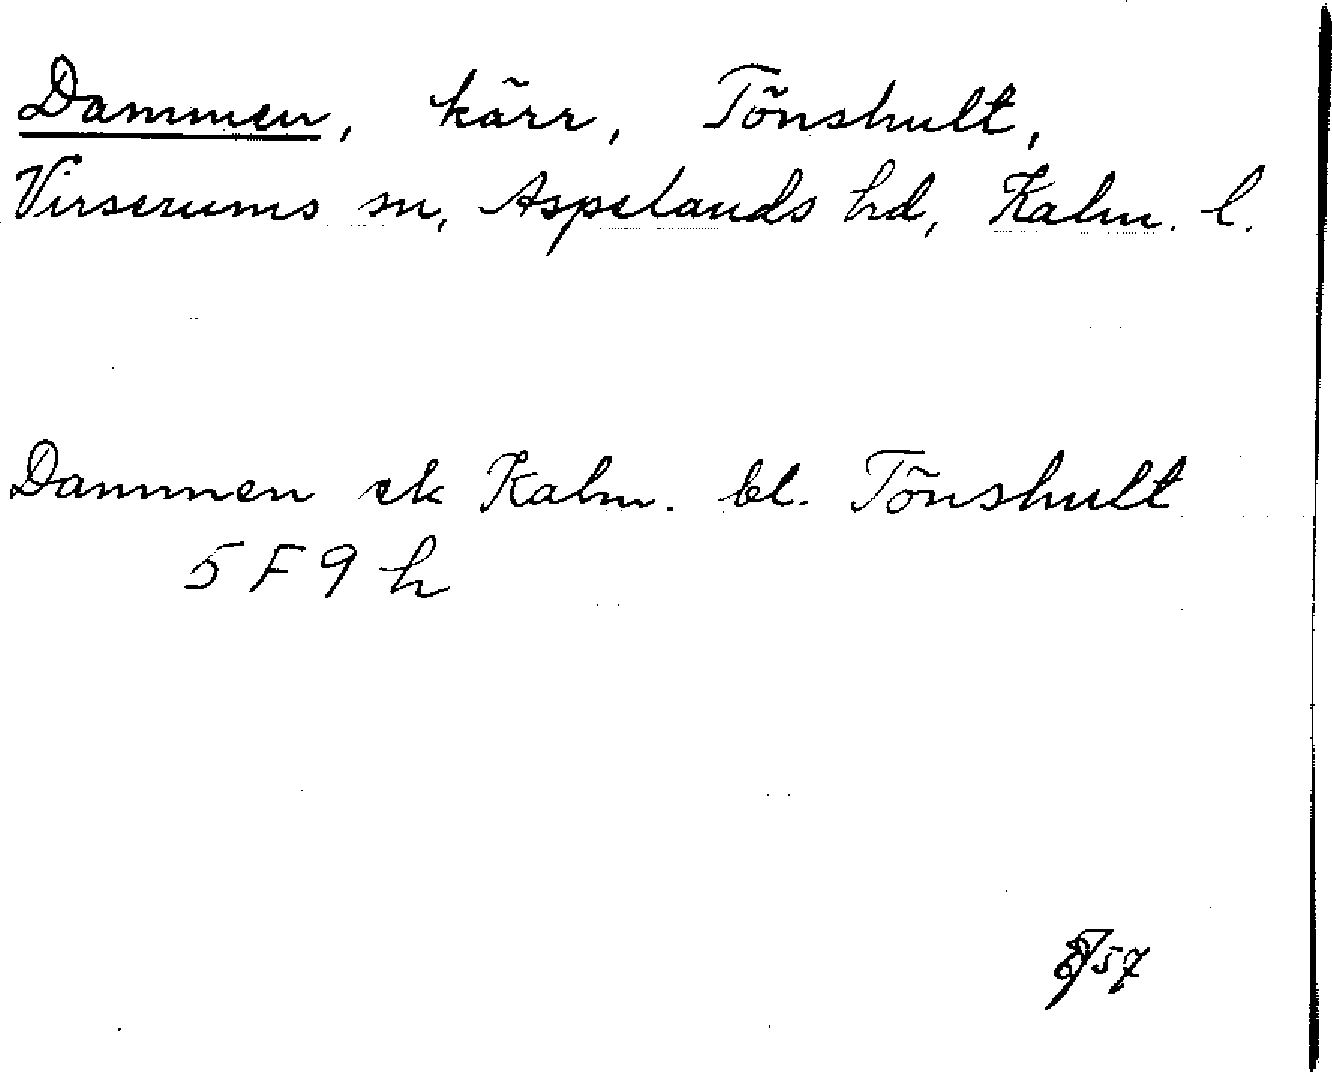 Dammen, kärr, Tönshult,
Virserums sn, Aspelands hd, Kalm. l.
Dammen ek Kalm. bl. Tönshult
5 F 9 h
57